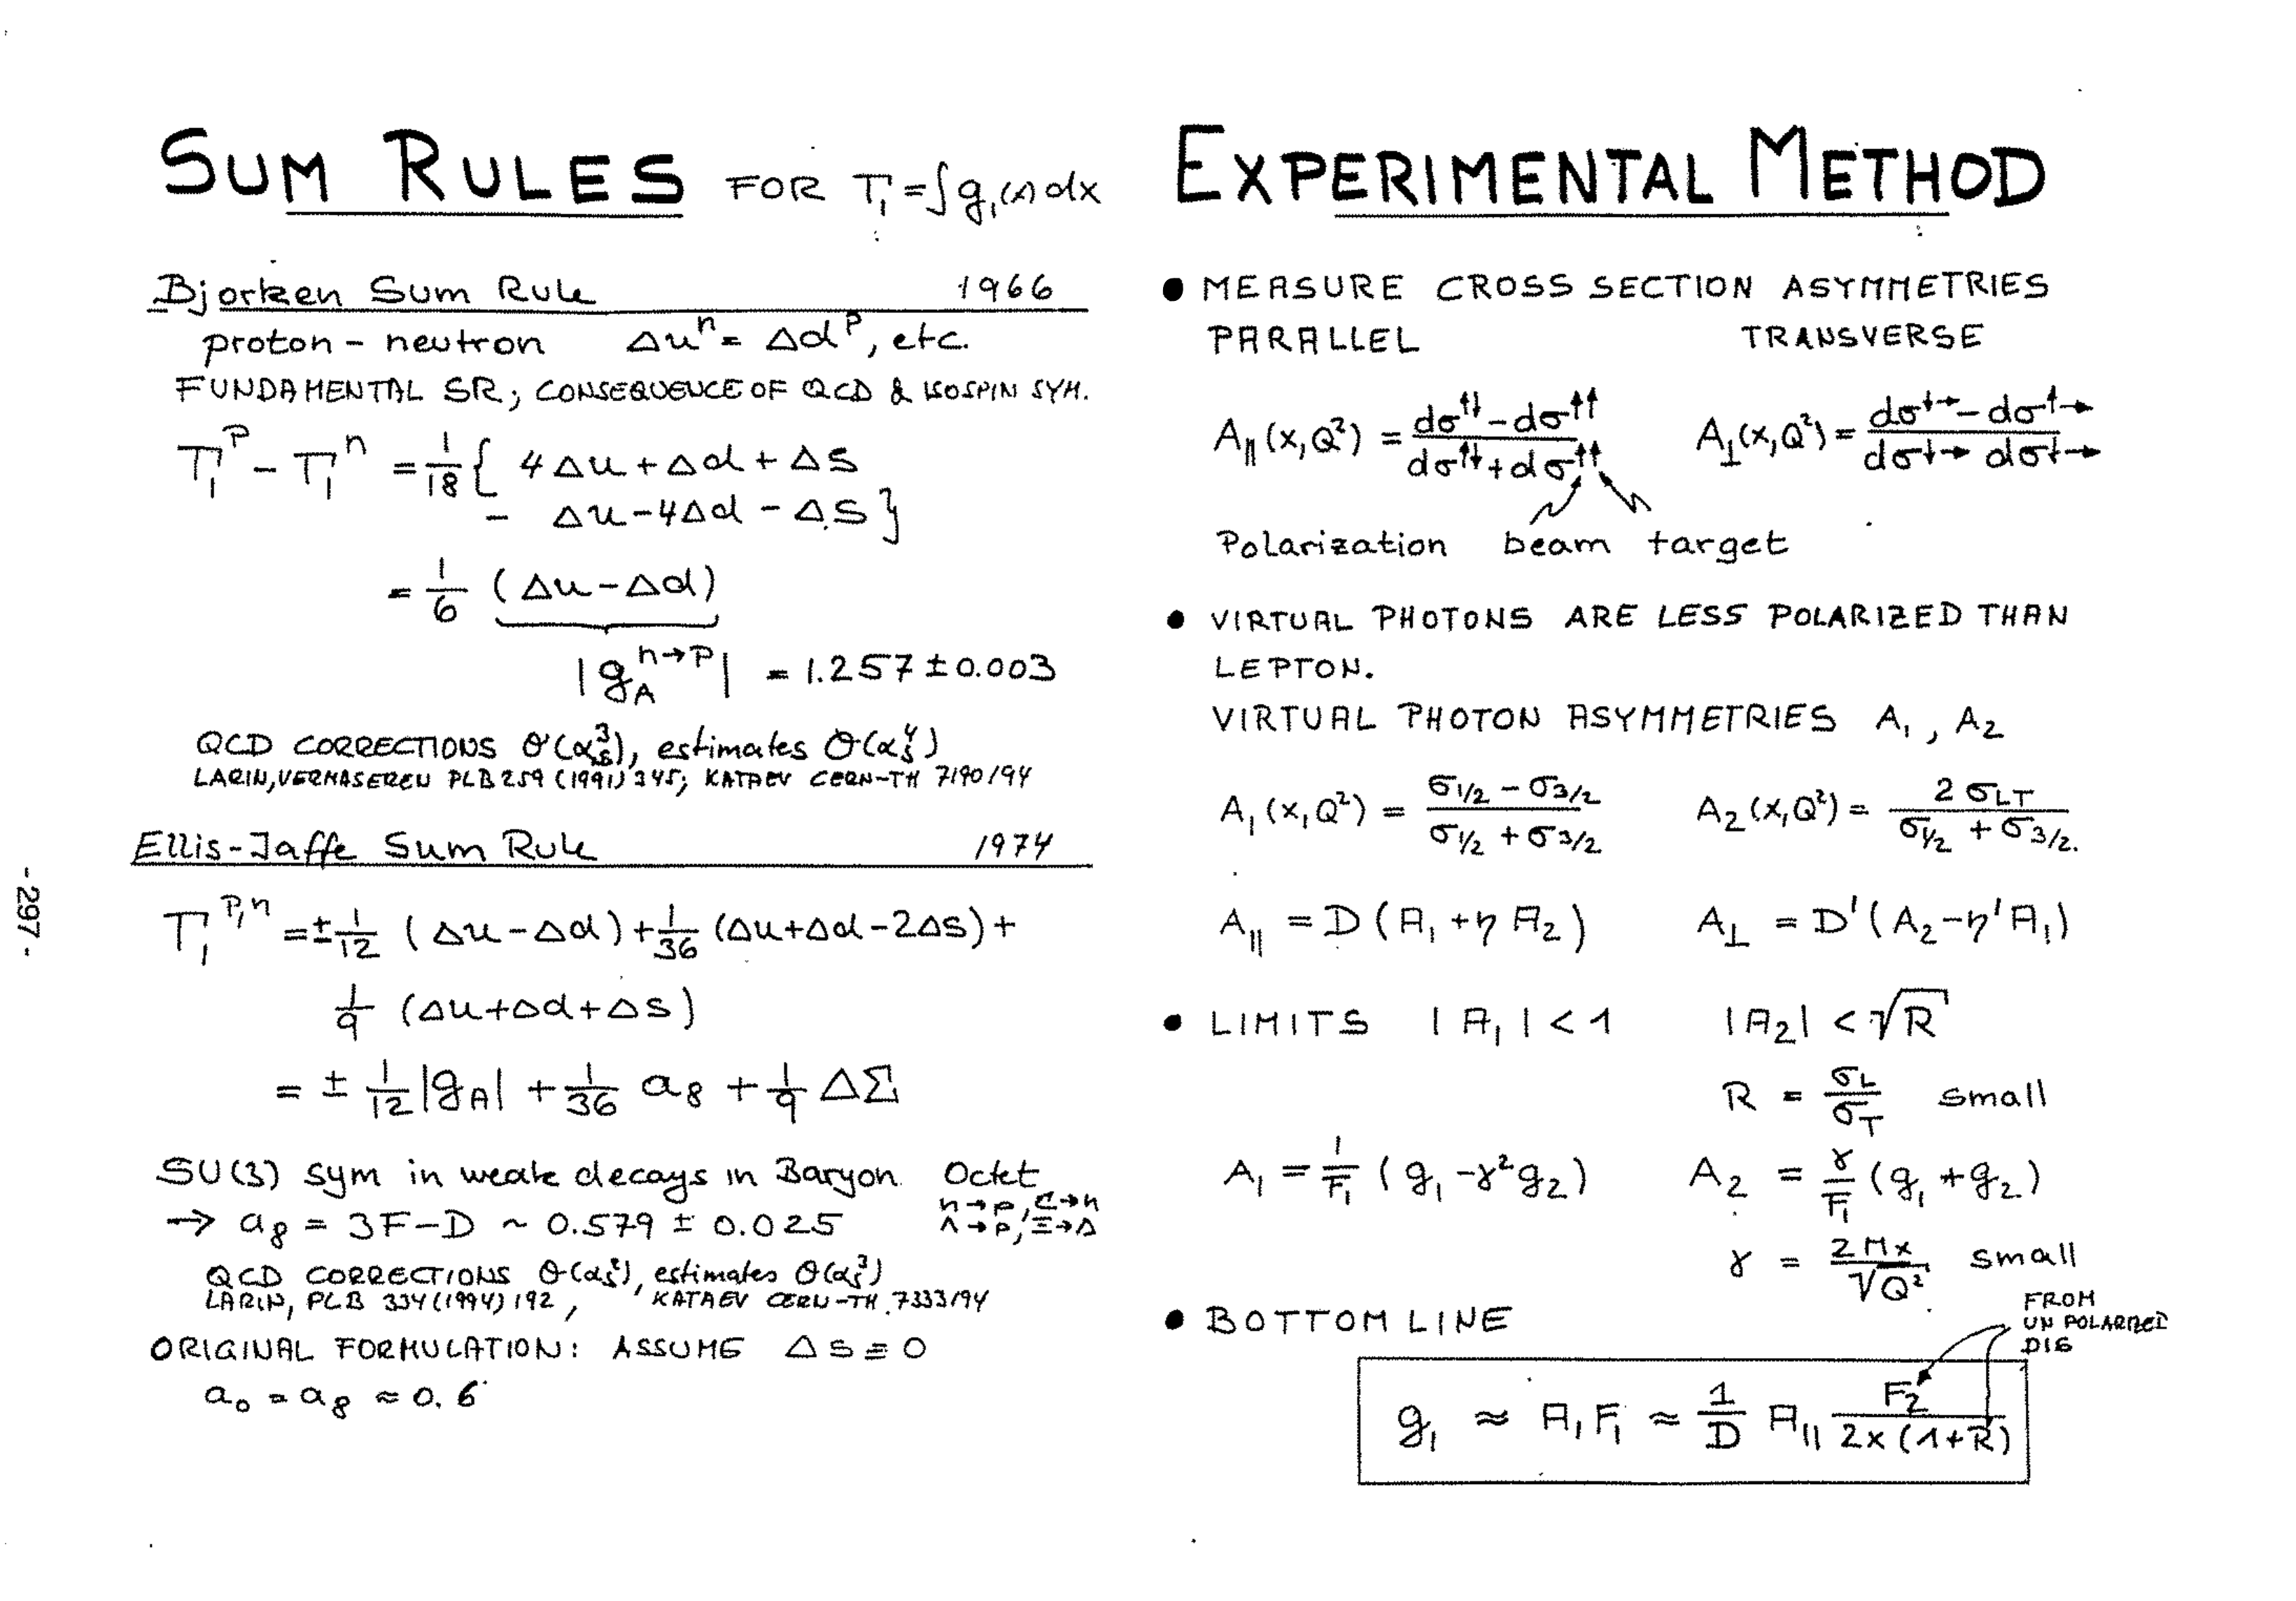 SUM RULES FOR Γ₁ = ∫ g₁(x) dx
Bjorken Sum Rule 1966
proton – neutron Δuⁿ = Δdᵖ, etc.
FUNDAMENTAL SR; CONSEQUENCE OF QCD & ISOSPIN SYM.
Γ₁ᵖ – Γ₁ⁿ = 1/18 { 4Δu + Δd + Δs
– Δu – 4Δd – Δs }
= 1/6 (Δu – Δd)
|g_A^{n→p}| = 1.257 ± 0.003
QCD CORRECTIONS O(αs³), estimates O(αs⁴)
LARIN, VERMASEREN PLB 259 (1991) 345; KATAEV CERN-TH 7190/94
Ellis-Jaffe Sum Rule 1974
Γ₁^{p,n} = ± 1/12 (Δu – Δd) + 1/36 (Δu + Δd – 2Δs) +
1/9 (Δu + Δd + Δs)
= ± 1/12 |g_A| + 1/36 a₈ + 1/9 ΔΣ
SU(3) sym in weak decays in Baryon Octet
n→p, Σ→n
→ a₈ = 3F – D ~ 0.579 ± 0.025
Λ→p, Ξ→Λ
QCD CORRECTIONS O(αs²), estimates O(αs³)
LARIN, PLB 334 (1994) 192, KATAEV CERN-TH.7333/94
ORIGINAL FORMULATION: ASSUME Δs ≡ 0
a₀ = a₈ ≈ 0.6
-297-
EXPERIMENTAL METHOD
● MEASURE CROSS SECTION ASYMMETRIES
PARALLEL TRANSVERSE
A∥(x,Q²) = (dσ↑↓ – dσ↑↑)/(dσ↑↓ + dσ↑↑) A⊥(x,Q²) = (dσ↓→ – dσ↑→)/(dσ↓→ dσ↓→)
Polarization beam target
● VIRTUAL PHOTONS ARE LESS POLARIZED THAN
LEPTON.
VIRTUAL PHOTON ASYMMETRIES A₁, A₂
A₁(x,Q²) = (σ1/2 – σ3/2)/(σ1/2 + σ3/2) A₂(x,Q²) = 2σLT/(σ1/2 + σ3/2.)
A∥ = D(A₁ + ηA₂) A⊥ = D'(A₂ – η'A₁)
● LIMITS |A₁| < 1 |A₂| < √R
R = σL/σT small
A₁ = 1/F₁ (g₁ – γ²g₂) A₂ = γ/F₁ (g₁ + g₂)
γ = 2Mx/√Q² small
● BOTTOM LINE
FROM
UNPOLARIZED
DIS
g₁ ≈ A₁F₁ ≈ 1/D A∥ F₂/(2x(1+R))